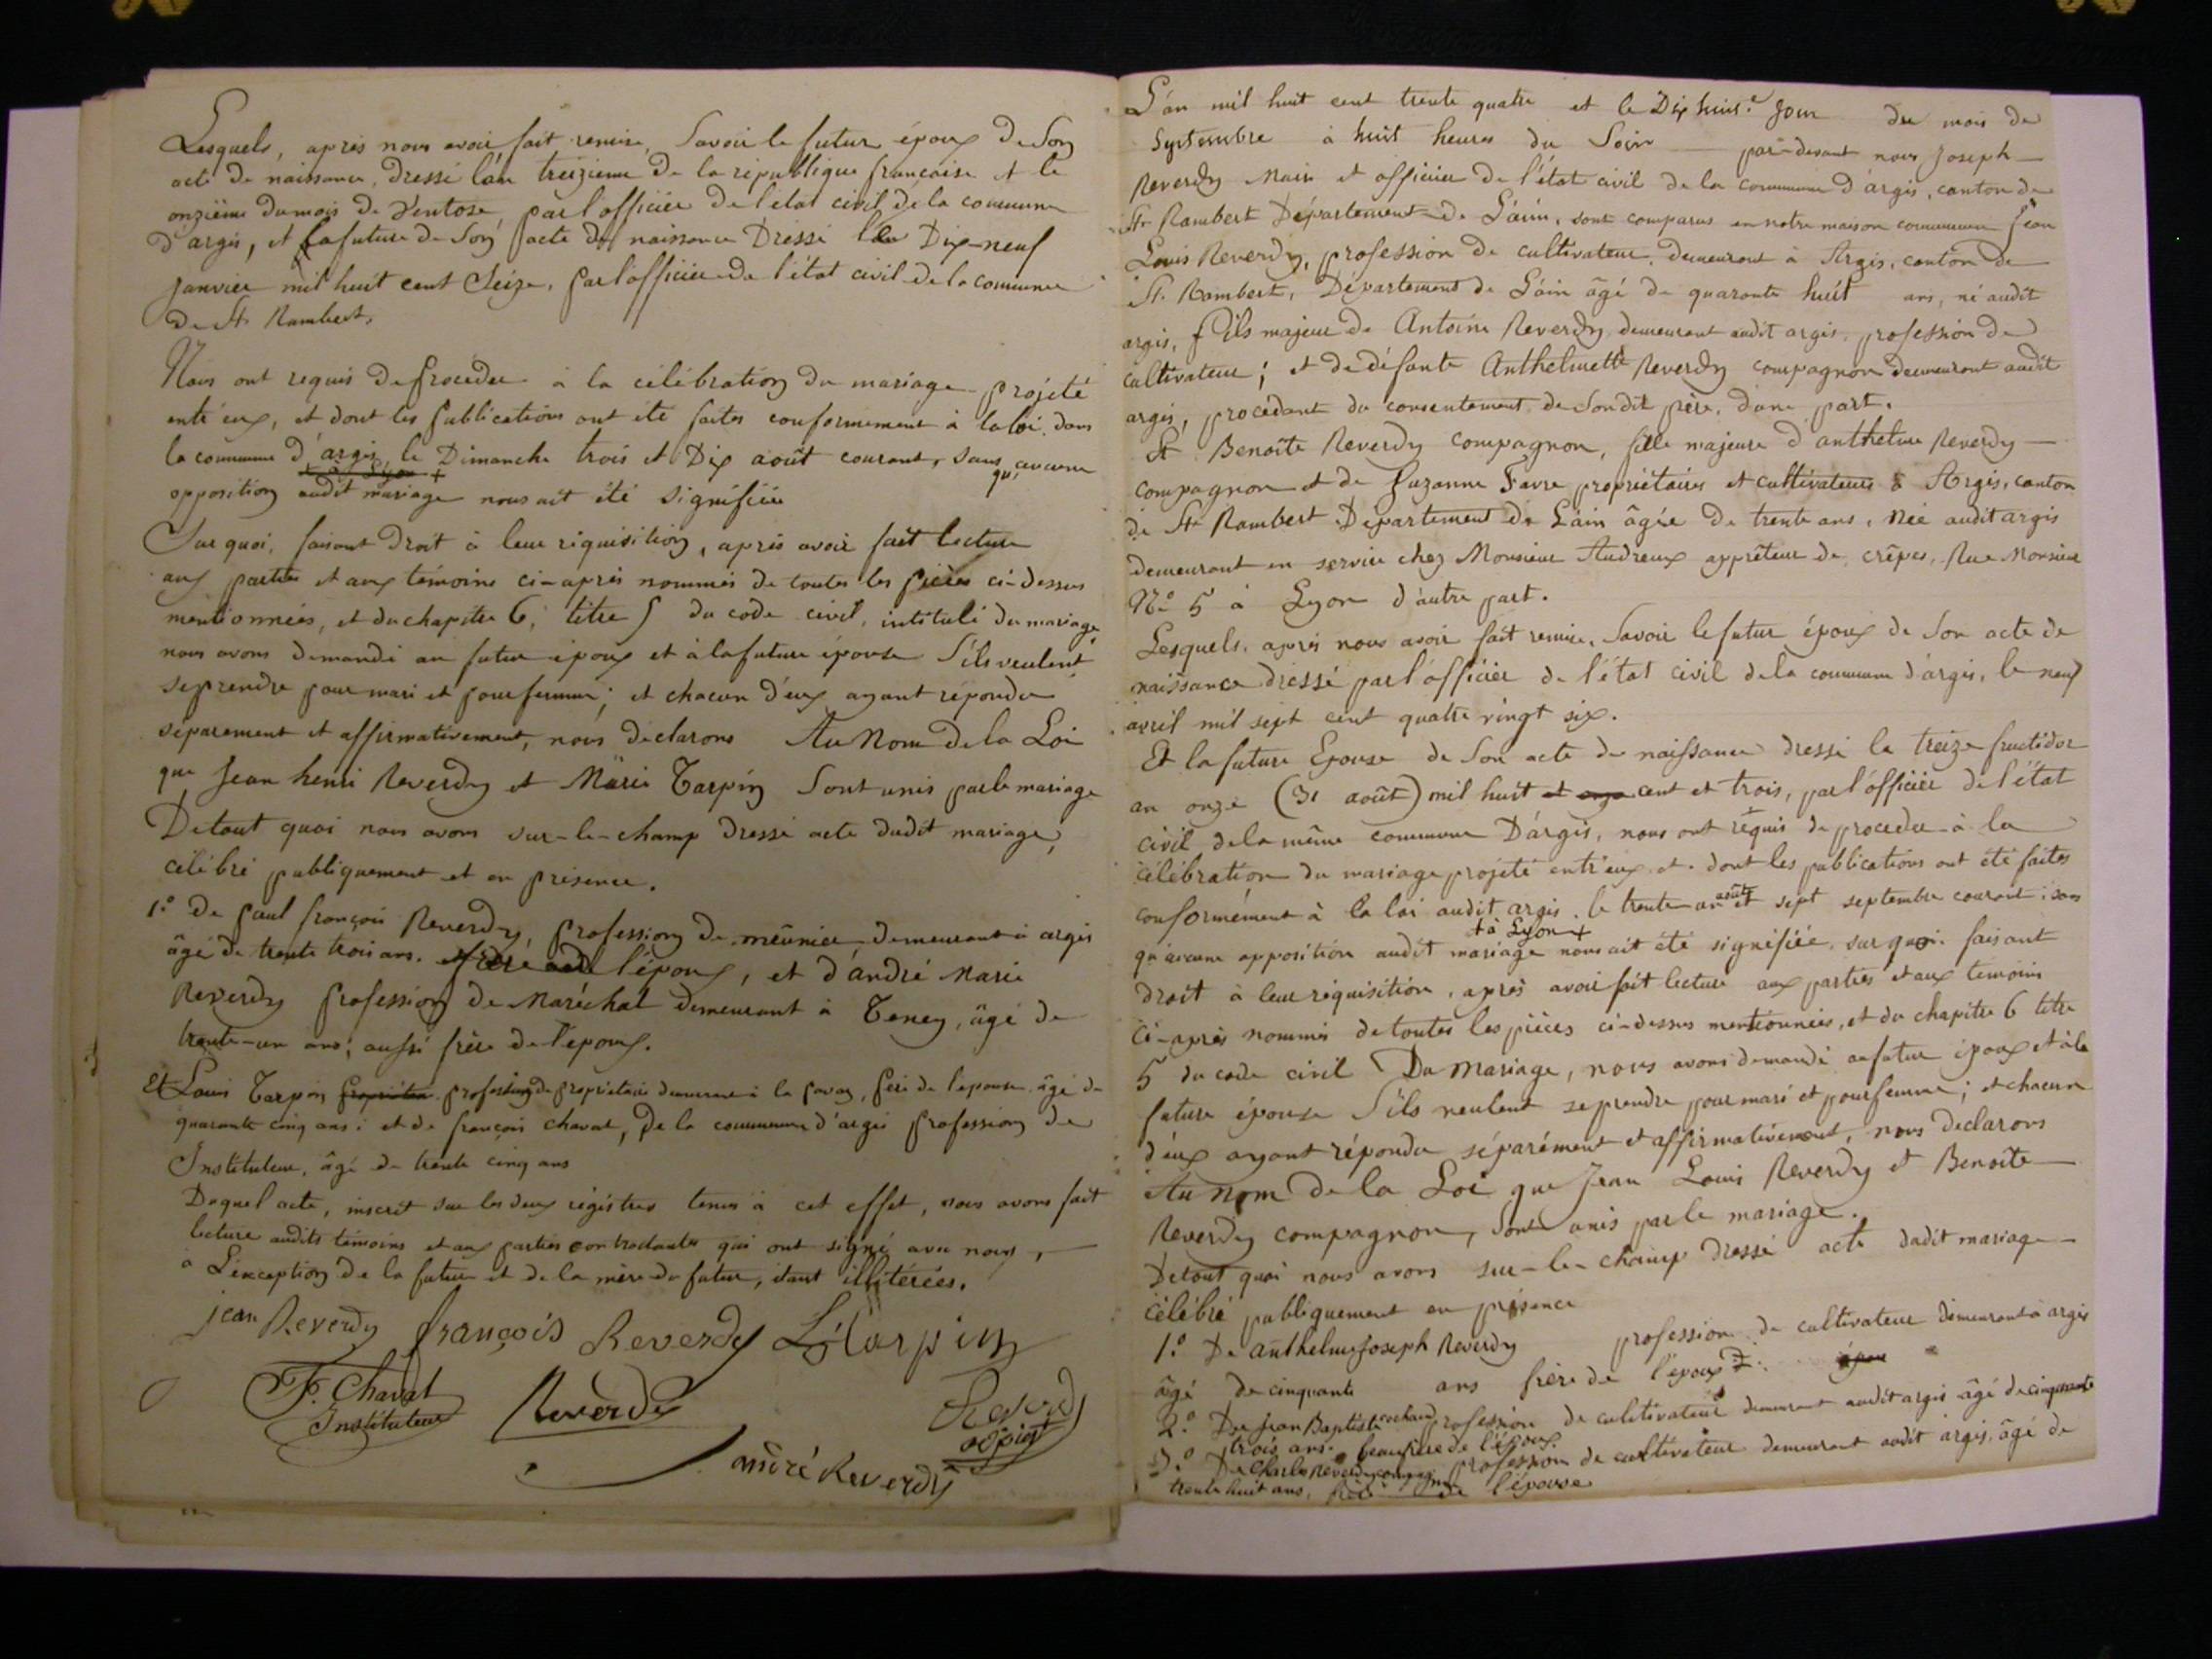 Lesquels, après nous avoir fait remise, Savoir le futur époux de Son
acte de naissance, dressé l'an treizieme de la republique française et le
onzième du mois de Ventose, par l'officier de l'etat civil de la commune
d'argis, et la future de Son acte de naissance Dressé le Dix-neuf
janvier mil huit cent Seize, par l'officier de l'état civil de la commune
de St Rambert,
Nous ont requis de proceder à la célébration du mariage projeté
entr'eux, et dont les publications ont été faites conformement à la loi, dans
la commune d'argis, le Dimanche trois et Dix août courant, sans qu'aucune
+ à Lyon +
opposition audit mariage nous ait été signifiée
Sur quoi, faisant droit à leur réquisition, après avoir fait lecture
aux parties et aux temoins ci-après nommés de toutes les pièces ci-dessus
mentionnées, et du chapitre 6, titre 5 du code civil, intitulé du mariage,
nous avons demandé au futur époux et à la future épouse S'ils veulent
se prendre pour mari et pour femme; et chacun d'eux ayant répondu
séparement et affirmativement, nous déclarons Au Nom de la Loi
que Jean henri Reverdy et Marie Tarpin Sont unis par le mariage
De tout quoi nous avons sur-le-champ dressé acte dudit mariage,
célébré publiquement et en présence.
1.o De paul françois Reverdy, profession de meûnier demeurant à argis
âgé de trente trois ans. frère de l'époux, et d'andré Marie
Reverdy profession de Maréchal demeurant à Teney, âgé de
trente-un ans; aussi frère de l'époux.
Et Louis Tarpin propriétaire profession de propriétaire demeurant à la , père de l'épouse, âgé de
quarante cinq ans; et de françois chavat, De la commune d'argis profession de
Instituteur, âgé de trente cinq ans
Duquel acte, inscrit sur les deux régistres tenus à cet effet, nous avons fait
lecture audits témoins et aux parties contractantes qui ont signé avec nous,
à L'exception de la future et de la mère du futur, étant illitérées.
jean Reverdy françois Reverdy L. tarpin
F. Chavat
Instituteur
Reverdy
Reverdy
adjoint
andré Reverdy
L'an mil huit cent trente quatre et le Dix huit.e Jour du mois de
Septembre à huit heures du Soir par-devant nous Joseph
Reverdy Maire et officier de l'état civil de la commune d'argis, canton de
St Rambert Département de L'ain, sont comparus en notre maison commune Jean
Louis Reverdy, profession de cultivateur, demeurant à Argis, canton de
St. Rambert, Département de L'ain âgé de quarante huit ans, né audit
argis, fils majeur de Antoine Reverdy demeurant audit argis, profession de
cultivateur; et de défunte Anthelmette Reverdy compagnon demeurant audit
argis, procédant du consentement de Son dit père, d'une part.
Et Benoîte Reverdy compagnon, fille majeure d'anthelme Reverdy
compagnon et de Suzanne Favre propriétaires et cultivateurs à Argis, canton
de St Rambert Département de L'ain âgée de trente ans, née audit argis
demeurant en service chez Monsieur Audreux apprêteur de crêpes, Rue Monsieur
No 5 à Lyon d'autre part.
Lesquels, après nous avoir fait remise, Savoir le futur époux de Son acte de
naissance dressé par l'officier de l'état civil de la commune d'argis, le neuf
avril mil sept cent quatre vingt six.
Et la future Epouse de Son acte de naissance dressé le treize fructidor
an onze (31 août) mil huit et onze cent et trois, par l'officier de l'état
civil de la même commune D'argis, nous ont réquis de proceder à la
célébration du mariage projeté entr'eux et dont les publications ont été faites
conformément à la loi audit argis, le trente un août et sept septembre courant; sans
+ à Lyon +
qu'aucune opposition audit mariage nous ait été signifiée, sur quoi faisant
droit à leur réquisition, après avoir fait lecture aux parties et aux temoins
ci-après nommés de toutes les pièces ci-dessus mentionnées, et du chapitre 6 titre
5 du code civil Du Mariage, nous avons demandé au futur époux et à la
future épouse S'ils veulent se prendre pour mari et pour femme; et chacun
d'eux ayant répondu séparément et affirmativement, nous declarons
Au nom de la Loi que Jean Louis Reverdy et Benoite
Reverdy compagnon, Sont unis par le mariage.
De tout quoi nous avons sur-le-champ dressé acte dudit mariage
célébré publiquement en présence
1.o De anthelme Joseph Reverdy profession de cultivateur demeurant à argis
âgé de cinquante ans frère de l'époux
2.o De Jean Baptiste profession de cultivateur demeurant audit argis âgé de cinquante
trois ans, beau frère de l'époux.
3.o De Charles Reverdy compagnon profession de cultivateur demeurant audit argis, âgé de
trente huit ans, frère de l'épouse